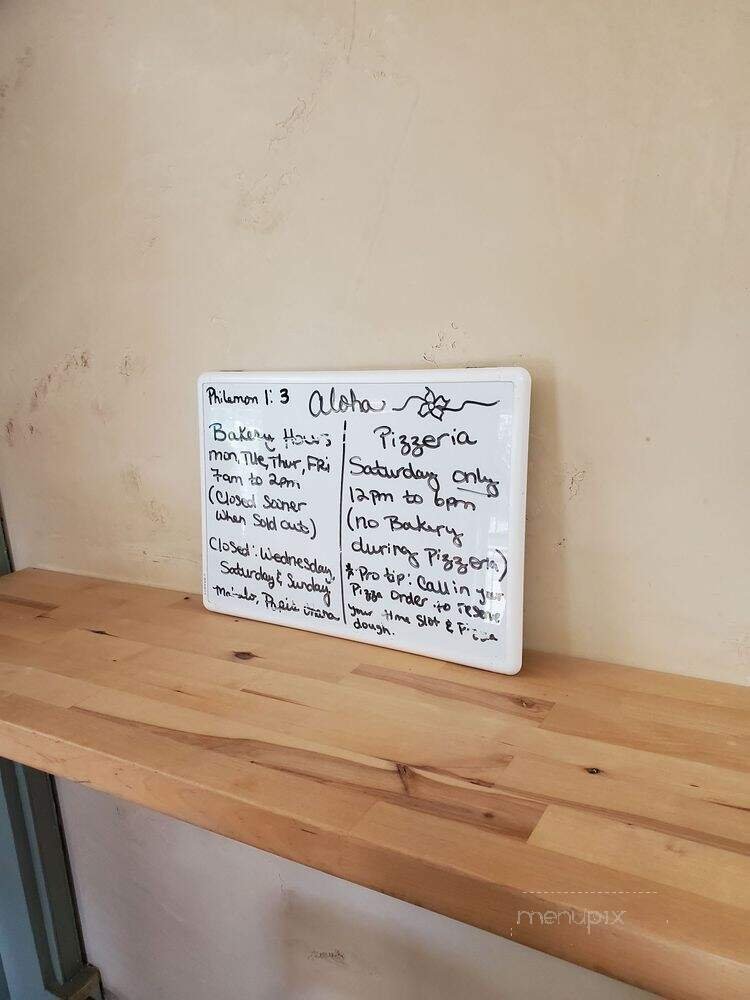 Philemon 1:3
Aloha
Bakery Hours
mon, Tue, Thur, Fri
7am to 2pm
(Closed sooner
when Sold out)
Closed: Wednesday,
Saturday & Sunday
Pizzeria
Saturday only
12pm to 6pm
(no Bakery
during Pizzeria)
* Pro tip: Call in your
Pizza Order to reserve
your time slot & Pizza
dough.
menupix